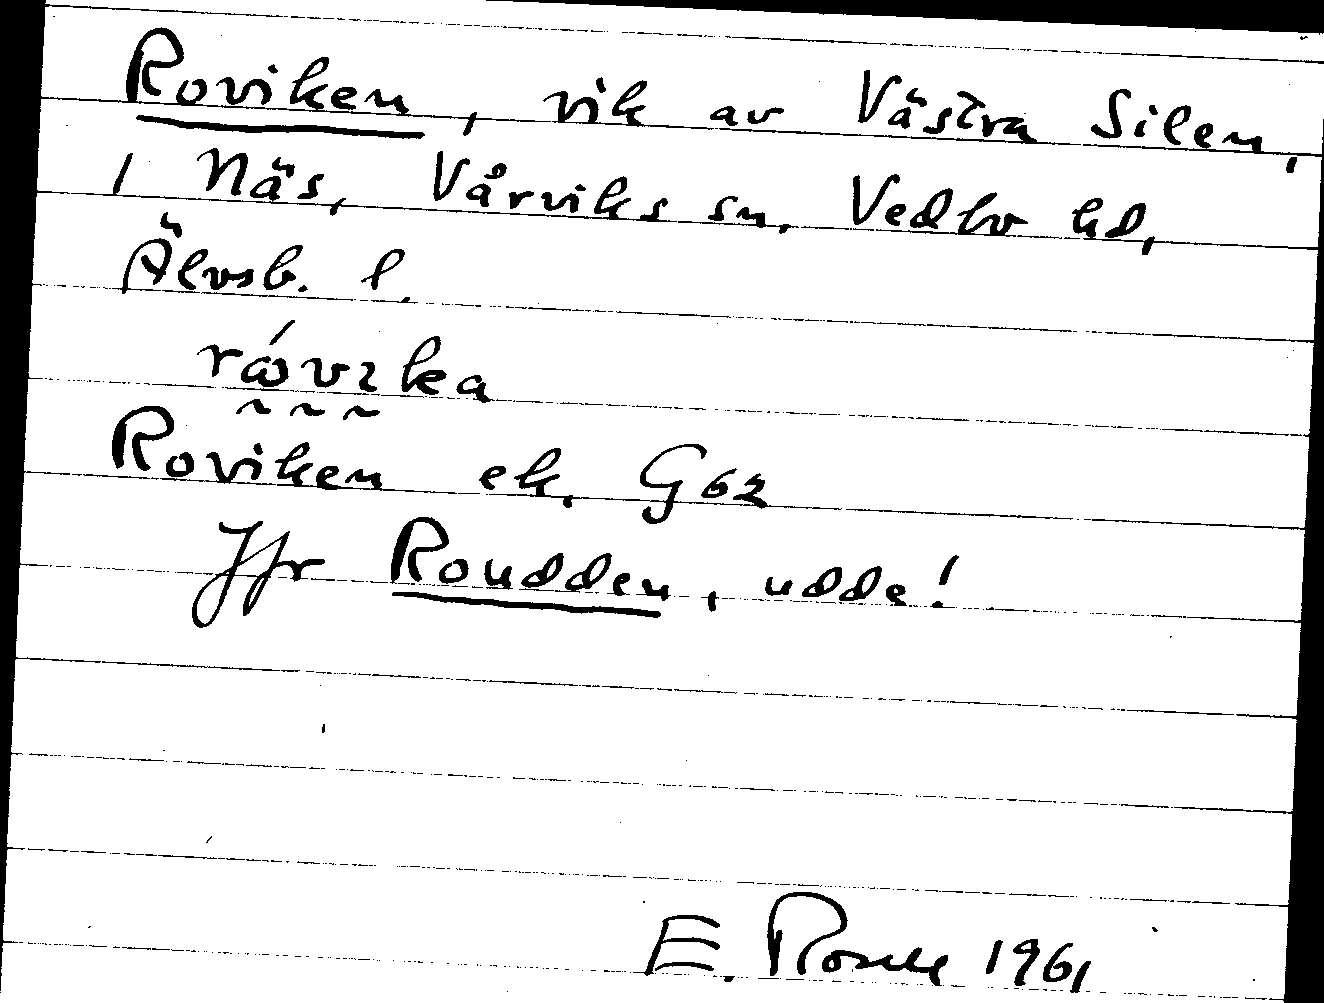 Roviken, vik av Västra Silen,
i Näs, Vårviks sn, Vedbo hd,
Älvsb. l.
Roviken ek. G 62
Jfr Roudden, udde!
E. 1961